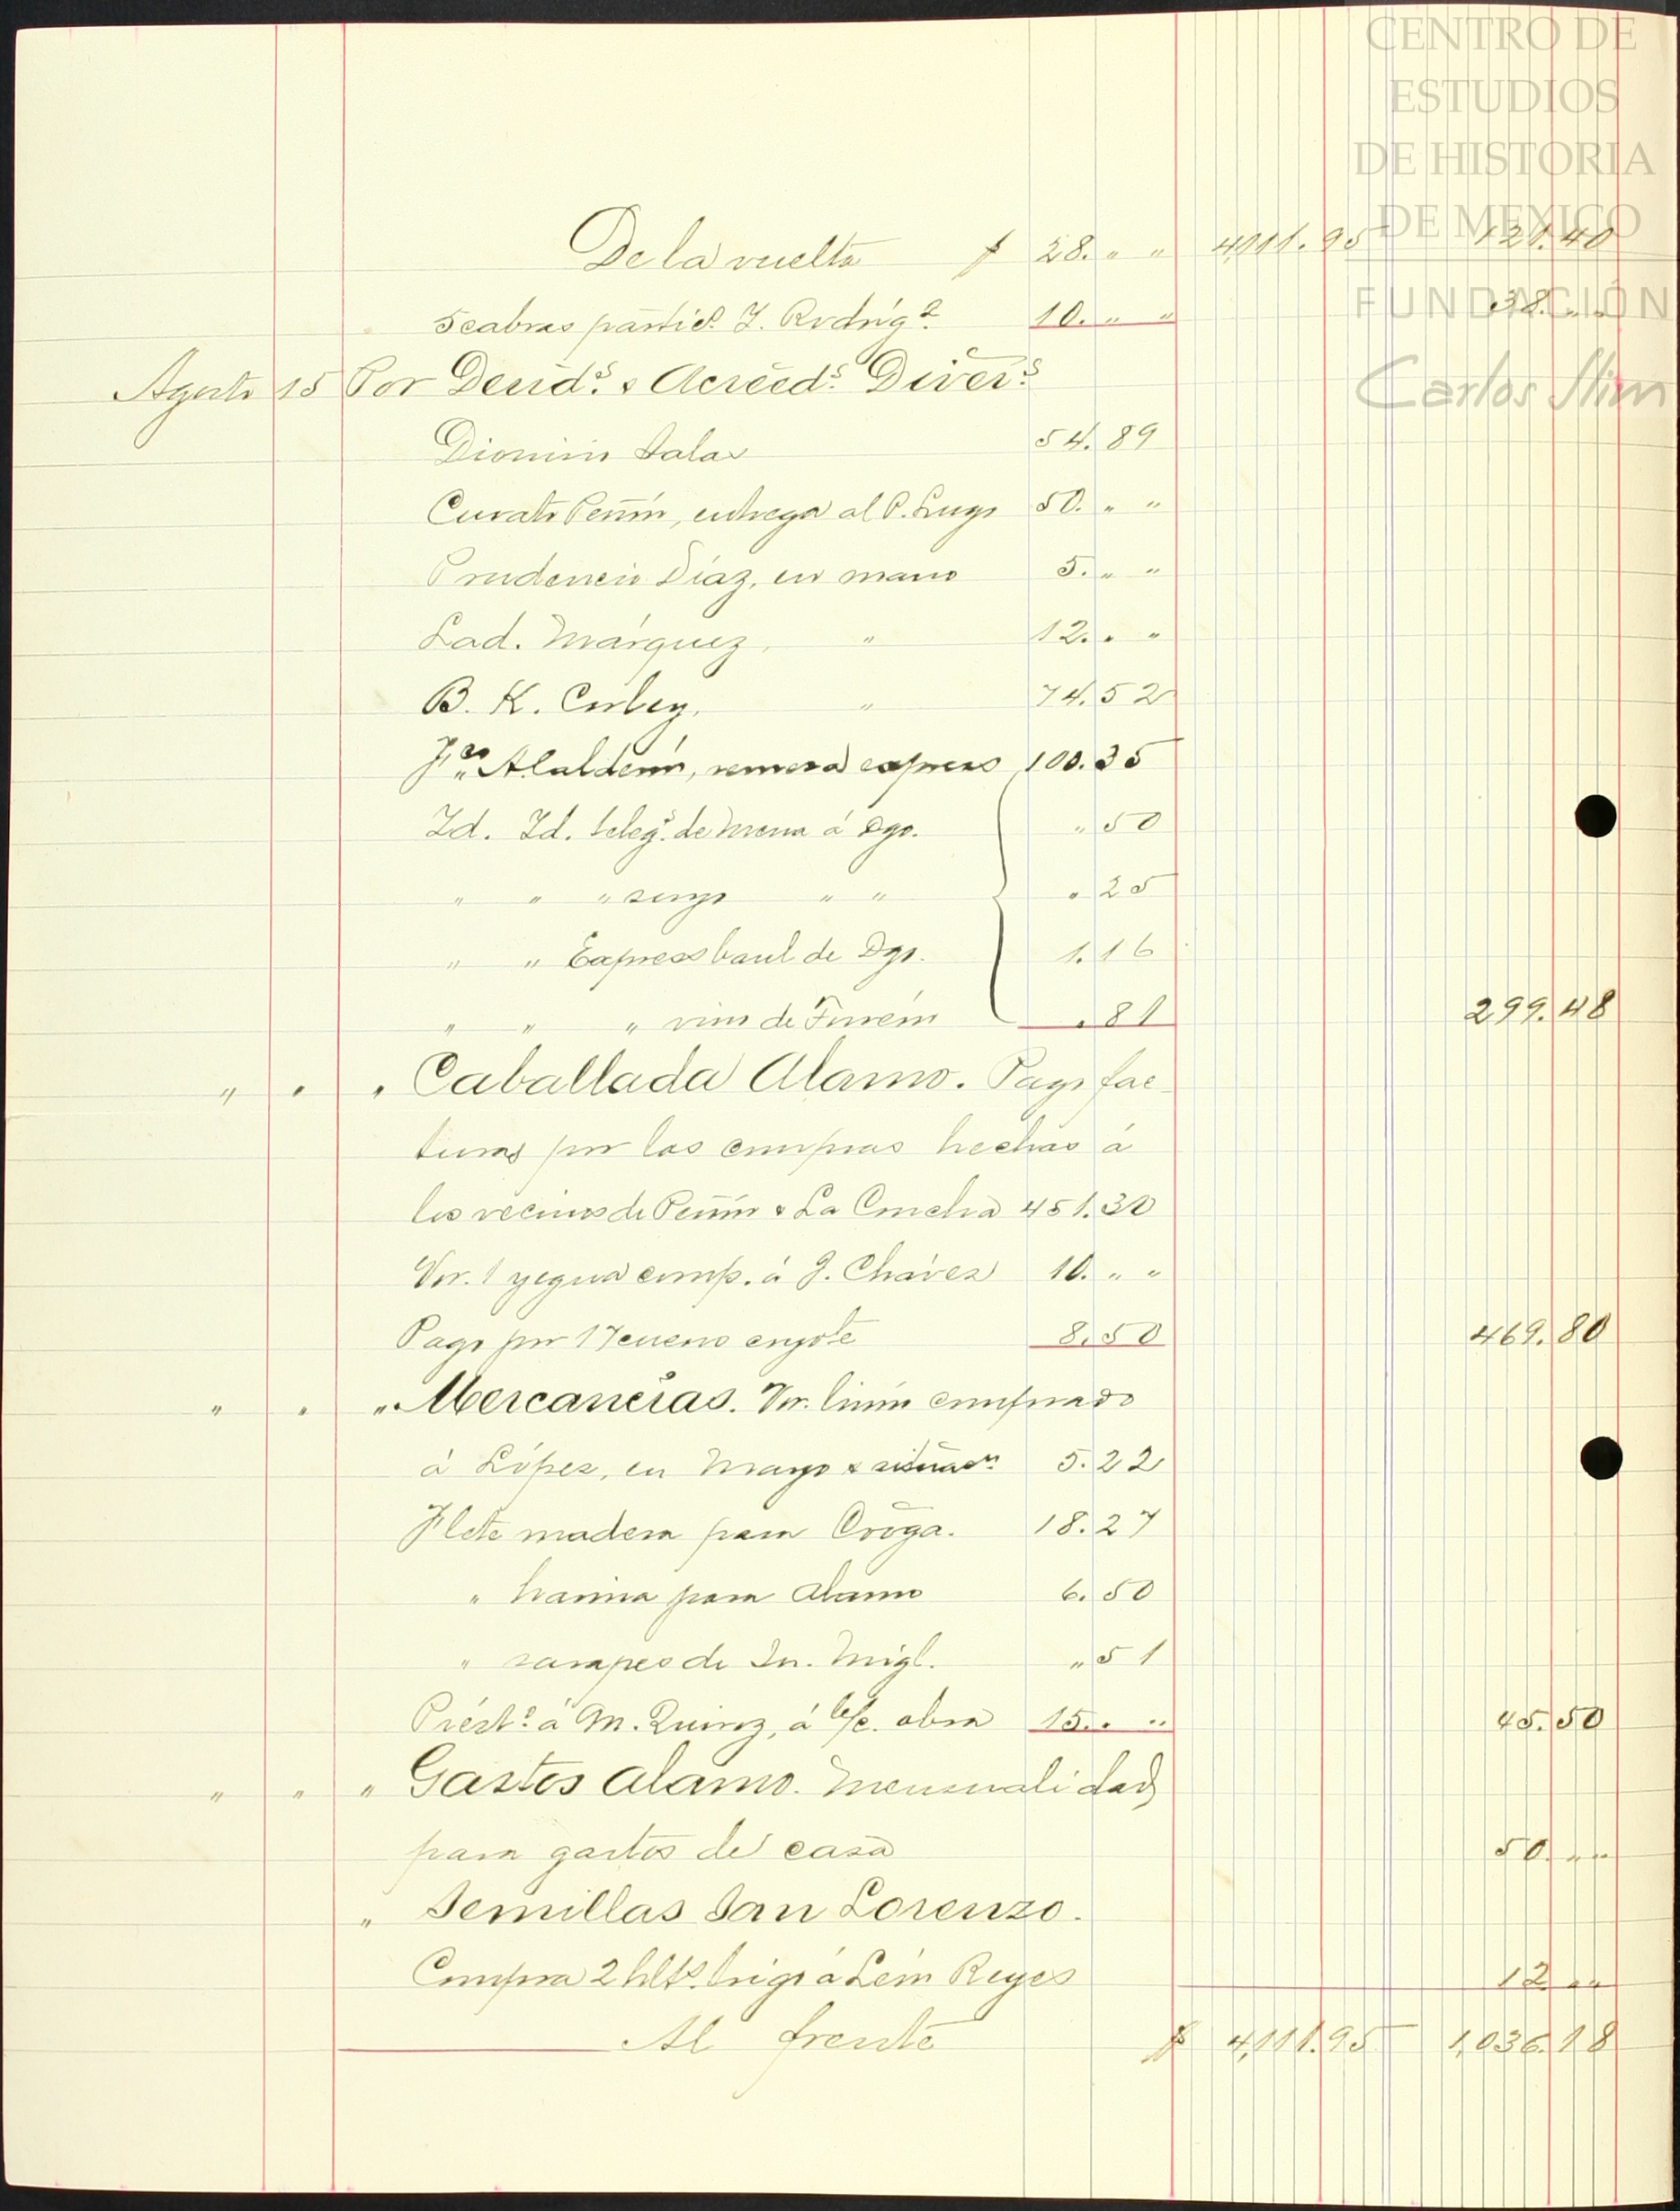 CENTRO DE
ESTUDIOS
DE HISTORIA
DE MEXICO
FUNDACIÓN
Carlos Slim
De la vuelta $ 28. " " 4,111.95 121.40
5 cabras partid? J. Rodrigz 10. " " 38. " "
Agosto 15 Por Deuds. & Acreeds. Divers.
Dionisio Salas 54.89
Curato Peñón, entrega al P. Lugo 50. " "
Prudencio Díaz, en mano 5. " "
Lad. Márquez, " 12. " "
B. K. Corley, " 74.52
remesa express 100.35
Id. Id. telegs. de Mena á Dgo. " 50
" " " suyo " " " 25
" " Express baul de Dgo. 1.16
" " " vino de Torreón " 81 299.48
" " " Caballada Alamo. Pago fac
turas por las compras hechas á
los vecinos de Peñón & La Concha 451.30
Vor. 1 yegua comp. á J. Cháves 10. " "
Pago por 1 coyote 8.50 469.80
" " " Mercancías. Vor. comprado
á López, en Mayo & situacn 5.22
Flete madera para 18.27
" harina para Alamo 6.50
" sarapes de Sn. Migl. " 51
Prést? á M. á c/c. obra 15. " " 45.50
" " " Gastos Alamo. Mensualidad
para gastos de casa 50. " "
" Semillas San Lorenzo.
Compra 2 hlts. trigo á León Reyes 12 " "
Al frente $ 4,111.95 1,036.18